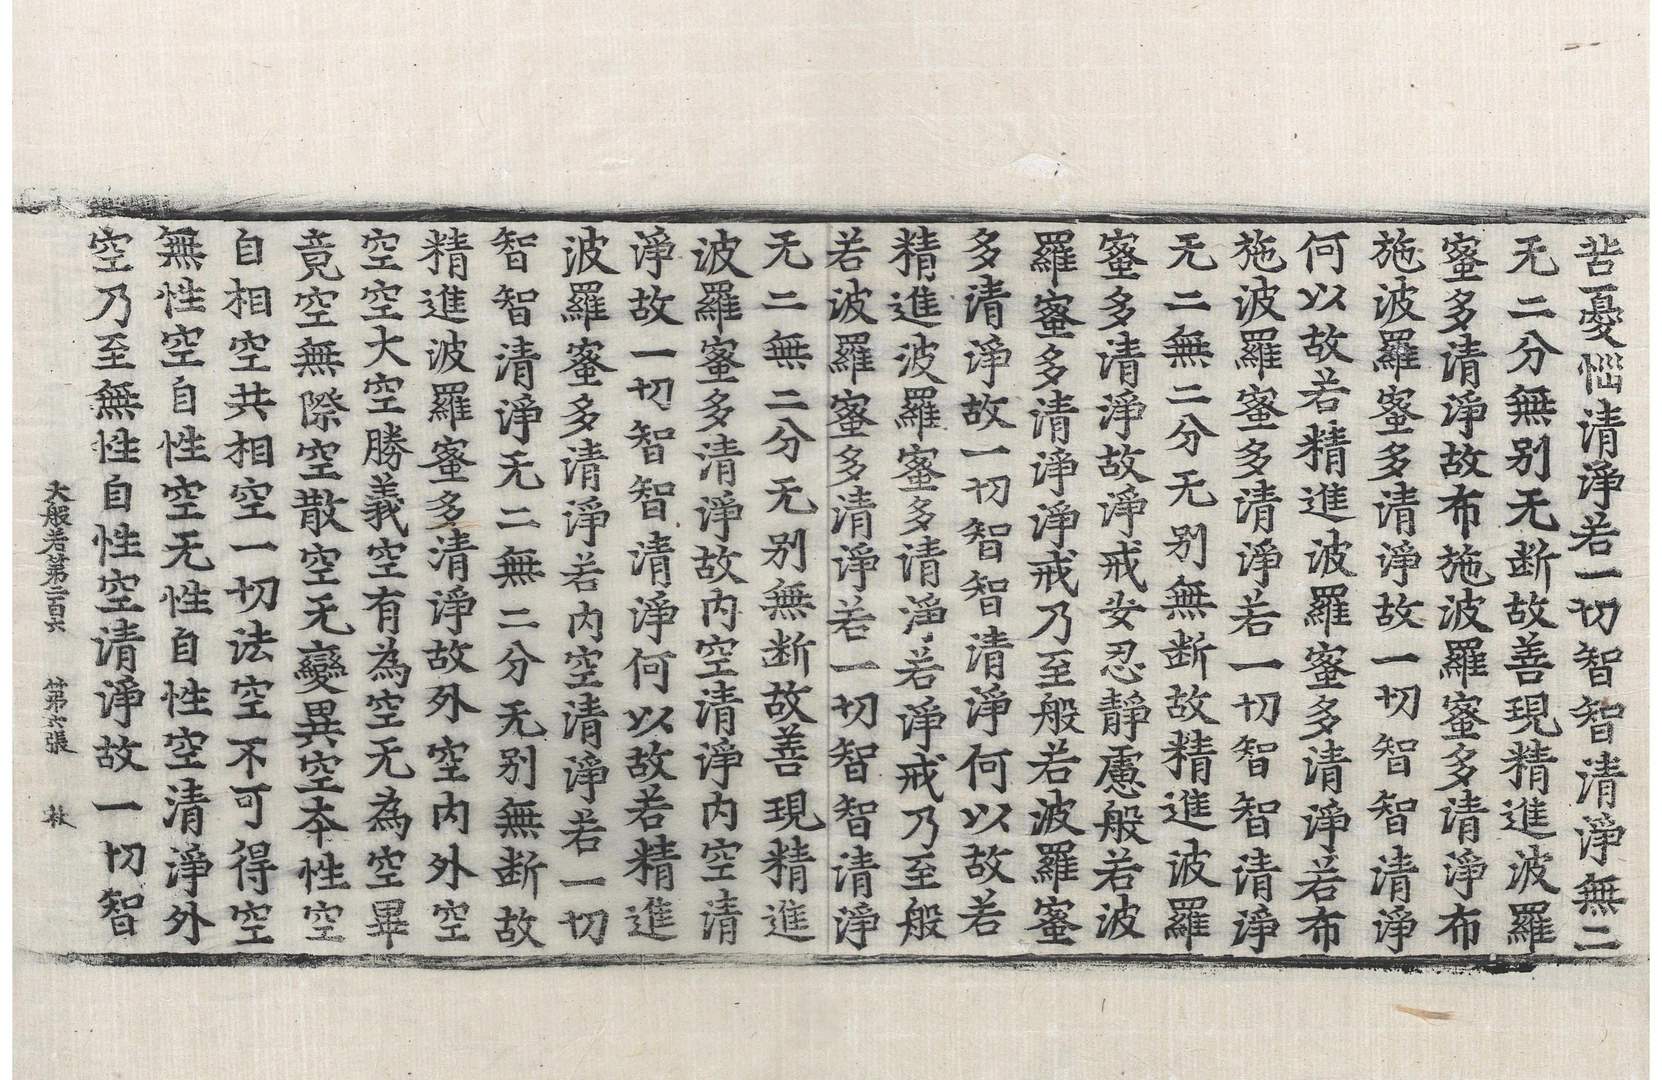 苦憂惱清淨若一切智智清淨無二
无二分無别无断故善現精進波羅
蜜多清淨故布施波羅蜜多清淨布
施波羅蜜多清淨故一切智智清淨
何以故若精進波羅蜜多清淨若布
施波羅蜜多清淨若一切智智清淨
无二無二分无别無断故精進波羅
蜜多清淨故淨戒安忍靜慮般若波
羅蜜多清淨淨戒乃至般若波羅蜜
多清淨故一切智智清淨何以故若
精進波羅蜜多清淨若淨戒乃至般
若波羅蜜多清淨若一切智智清淨
无二無二分无别無断故善現精進
波羅蜜多清淨故内空清淨内空清
淨故一切智智清淨何以故若精進
波羅蜜多清淨若内空清淨若一切
智智清淨无二無二分无别無断故
精進波羅蜜多清淨故外空内外空
空空大空勝義空有為空无為空畢
竟空無際空散空无變異空本性空
自相空共相空一切法空不可得空
無性空自性空无性自性空清淨外
空乃至無性自性空清淨故一切智
大般若第二百六 第六張